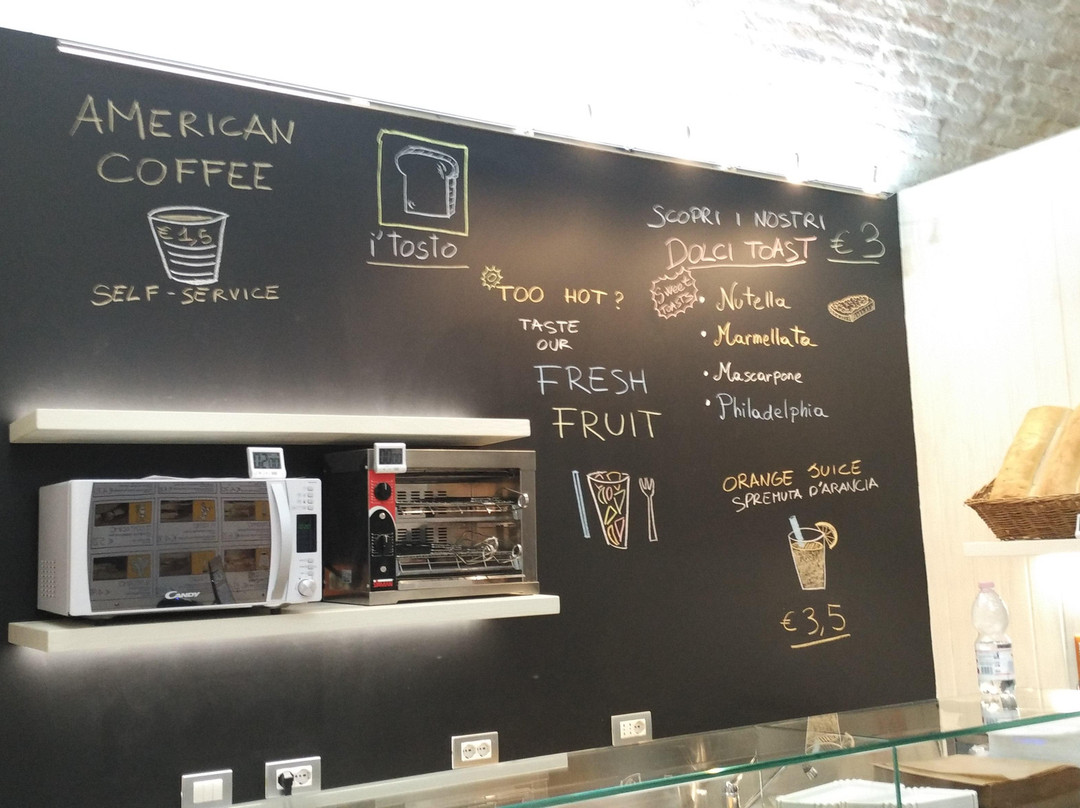 AMERICAN
COFFEE
€ 1,5
SELF-SERVICE
i'tosto
TOO HOT?
TASTE
OUR
FRESH
FRUIT
SCOPRI I NOSTRI
DOLCI TOAST € 3
SWEET
TOASTS
• Nutella
• Marmellata
• Mascarpone
• Philadelphia
ORANGE JUICE
SPREMUTA D'ARANCIA
€ 3,5
CANDY